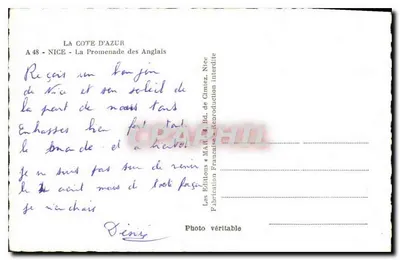 LA COTE D'AZUR
A 48 - NICE - La Promenade des Anglais
Reçois un bonjour
de Nice et son soleil de
la part de nous tous
Embrasses bien fort tout
le monde et à
je ne suis pas sur de venir
le août mais de toute façon
je
Denis
Les Editions "MAR", Bd. de Cimiez, Nice
Fabrication Française - Reproduction interdite
Photo véritable
CPARAMA